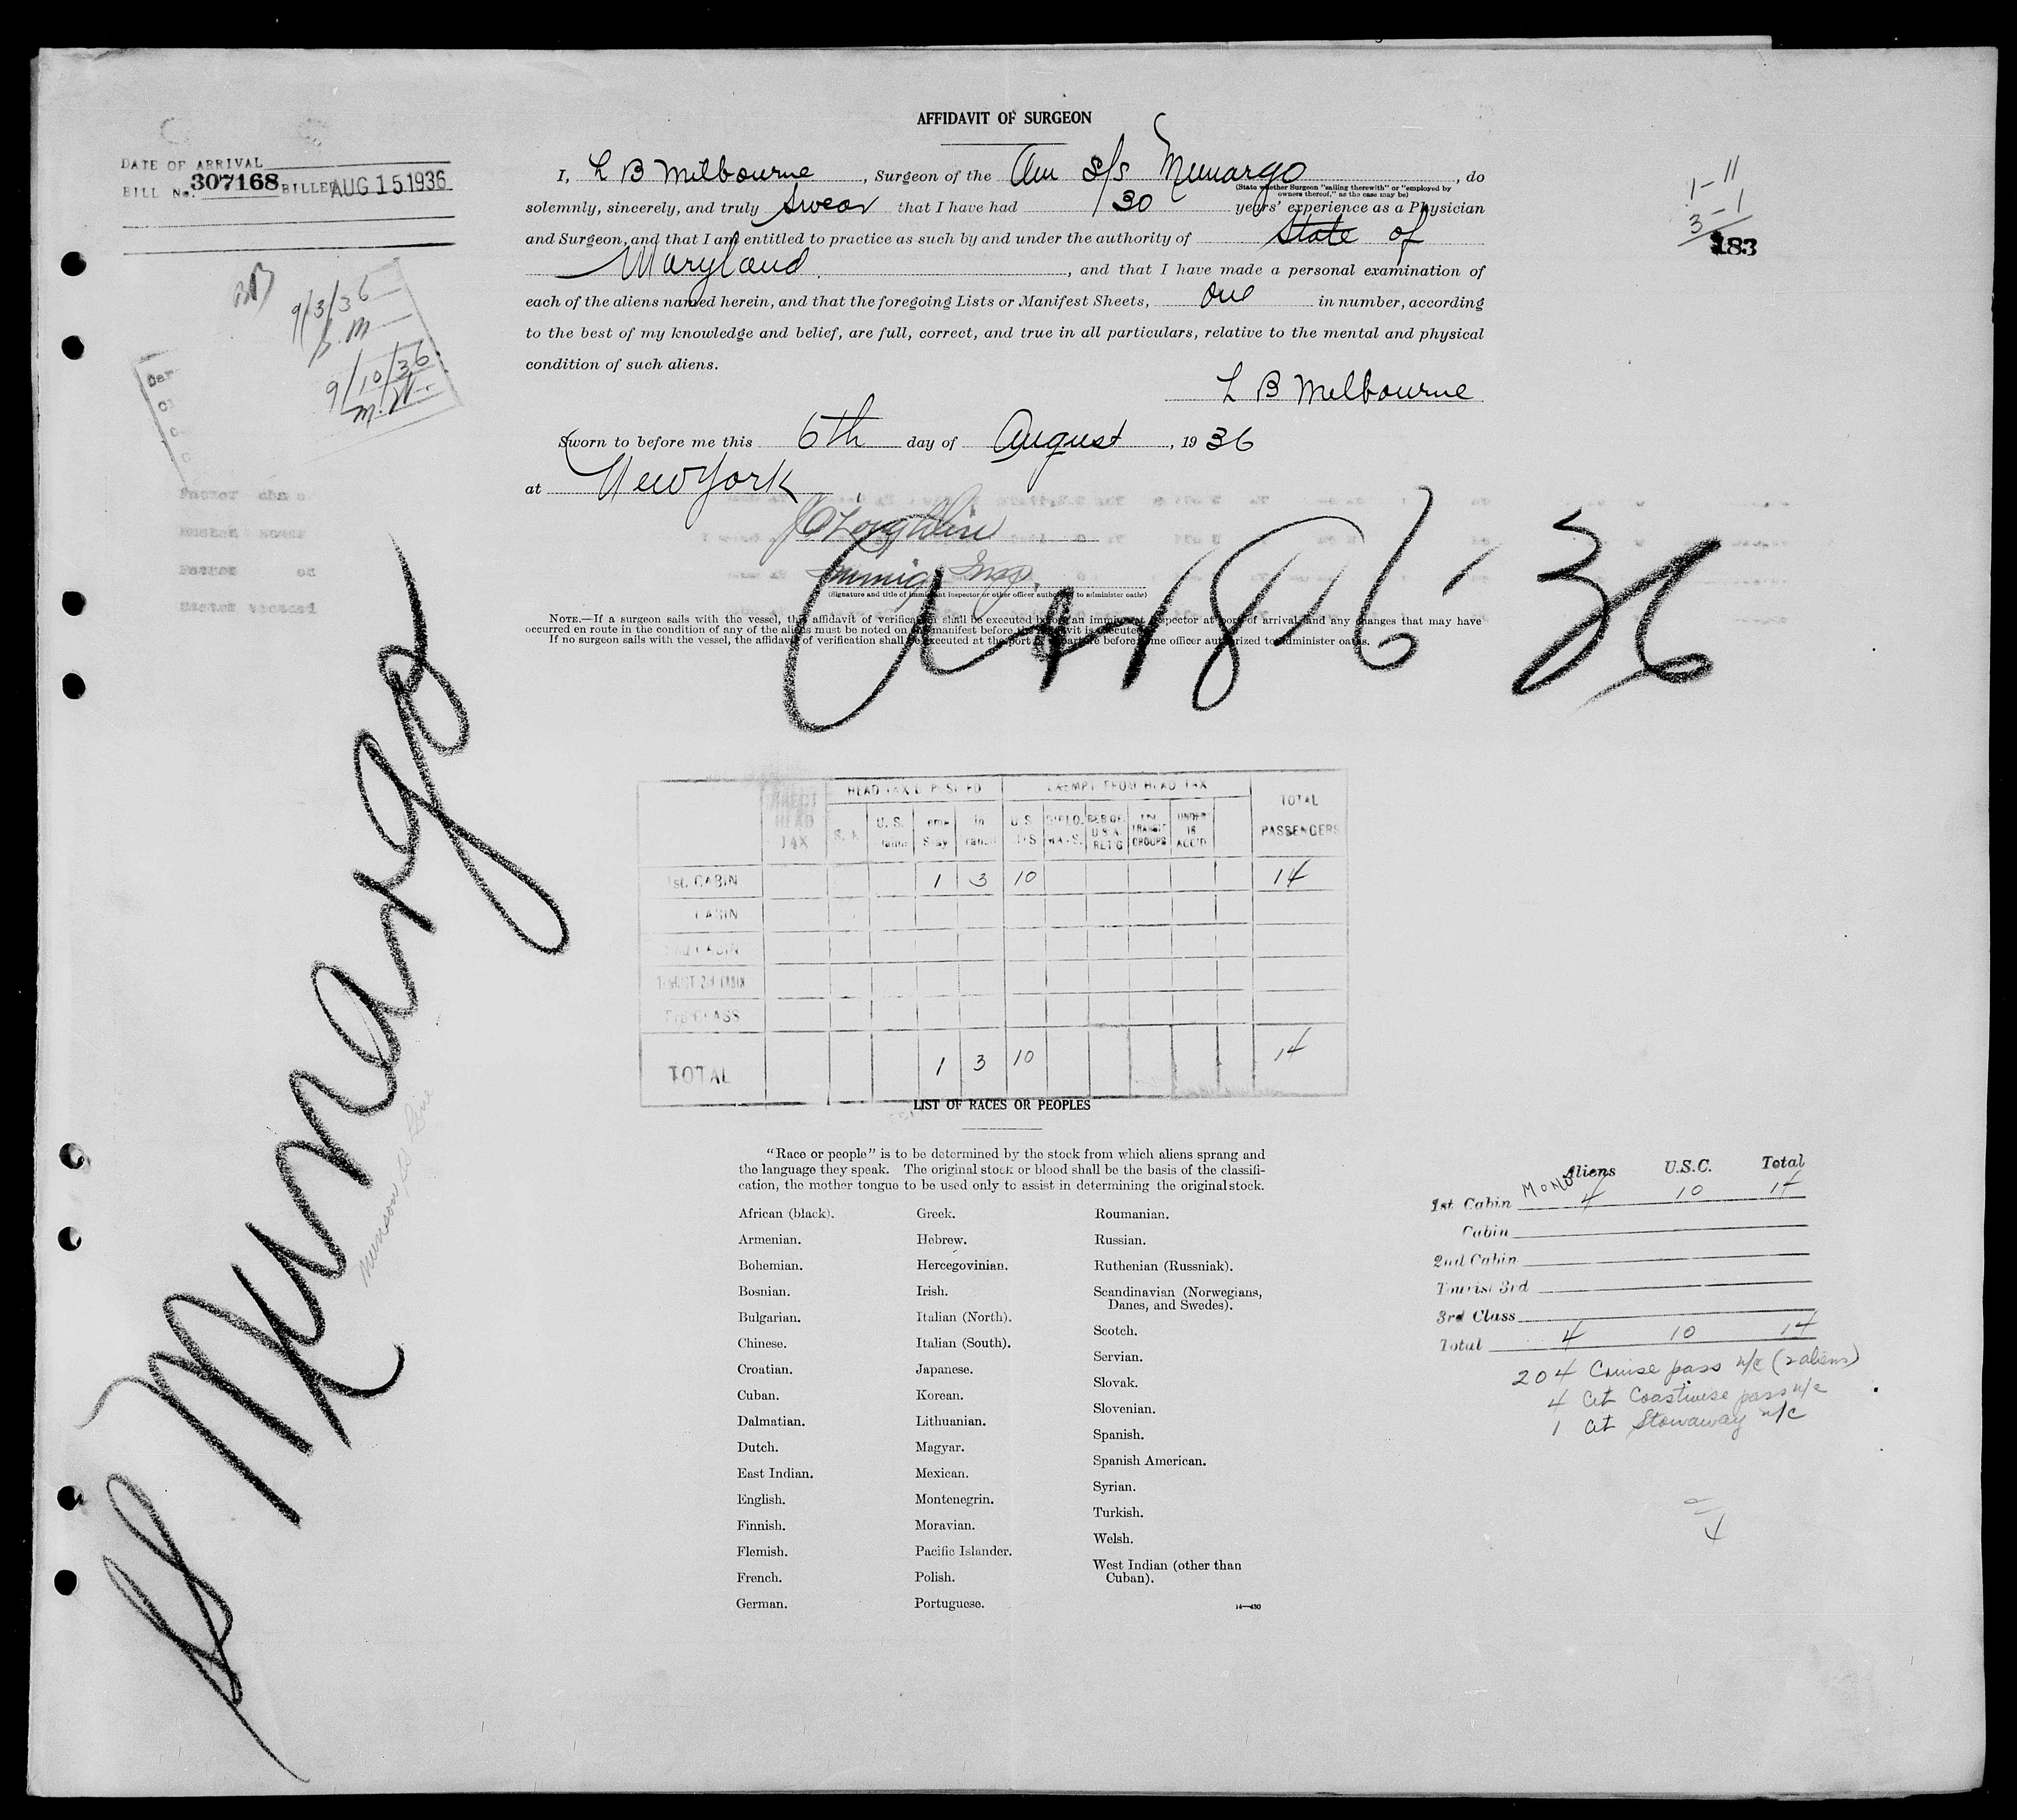 AFFIDAVIT OF SURGEON
DATE OF ARRIVAL
BILL No. 307168 BILLED AUG 15 1936
I, L B Melbourne, Surgeon of the Am S/S Munargo, do
(State whether Surgeon "sailing therewith" or "employed by
owners thereof," as the case may be)
solemnly, sincerely, and truly swear that I have had 30 years' experience as a Physician
and Surgeon, and that I am entitled to practice as such by and under the authority of State of
Maryland, and that I have made a personal examination of
each of the aliens named herein, and that the foregoing Lists or Manifest Sheets, one in number, according
to the best of my knowledge and belief, are full, correct, and true in all particulars, relative to the mental and physical
condition of such aliens.
L B Melbourne
Sworn to before me this 6th day of August, 1936
at New York
J O'Loughlin
Immig Insp.
(Signature and title of immigrant inspector or other officer authorized to administer oaths)
1-11
3-1
183
9/3/36
S. M
9/10/36
M. W.
NOTE.—If a surgeon sails with the vessel, the affidavit of verification shall be executed before an immigrant inspector at port of arrival, and any changes that may have
occurred en route in the condition of any of the aliens must be noted on the manifest before the affidavit is executed.
If no surgeon sails with the vessel, the affidavit of verification shall be executed at the port of departure before some officer authorized to administer oaths.
Arr 8-6-36
SS Munargo
Munson SS Line
HEAD TAX DEPOSITED EXEMPT FROM HEAD TAX
DIRECT HEAD TAX
TOTAL PASSENGERS
1st. CABIN 1 3 10 14
CABIN
2nd CABIN
TOURIST 3rd CABIN
3rd CLASS
TOTAL 1 3 10 14
LIST OF RACES OR PEOPLES
"Race or people" is to be determined by the stock from which aliens sprang and
the language they speak. The original stock or blood shall be the basis of the classifi-
cation, the mother tongue to be used only to assist in determining the original stock.
African (black).
Armenian.
Bohemian.
Bosnian.
Bulgarian.
Chinese.
Croatian.
Cuban.
Dalmatian.
Dutch.
East Indian.
English.
Finnish.
Flemish.
French.
German.
Greek.
Hebrew.
Hercegovinian.
Irish.
Italian (North).
Italian (South).
Japanese.
Korean.
Lithuanian.
Magyar.
Mexican.
Montenegrin.
Moravian.
Pacific Islander.
Polish.
Portuguese.
Roumanian.
Russian.
Ruthenian (Russniak).
Scandinavian (Norwegians,
Danes, and Swedes).
Scotch.
Servian.
Slovak.
Slovenian.
Spanish.
Spanish American.
Syrian.
Turkish.
Welsh.
West Indian (other than
Cuban).
14—430
Aliens U.S.C. Total
1st Cabin 4 10 14
Cabin
2nd Cabin
Tourist 3rd
3rd Class
Total 4 10 14
204 Cruise pass n/c (2 aliens)
4 cit Coastwise pass n/c
1 cit Stowaway n/c